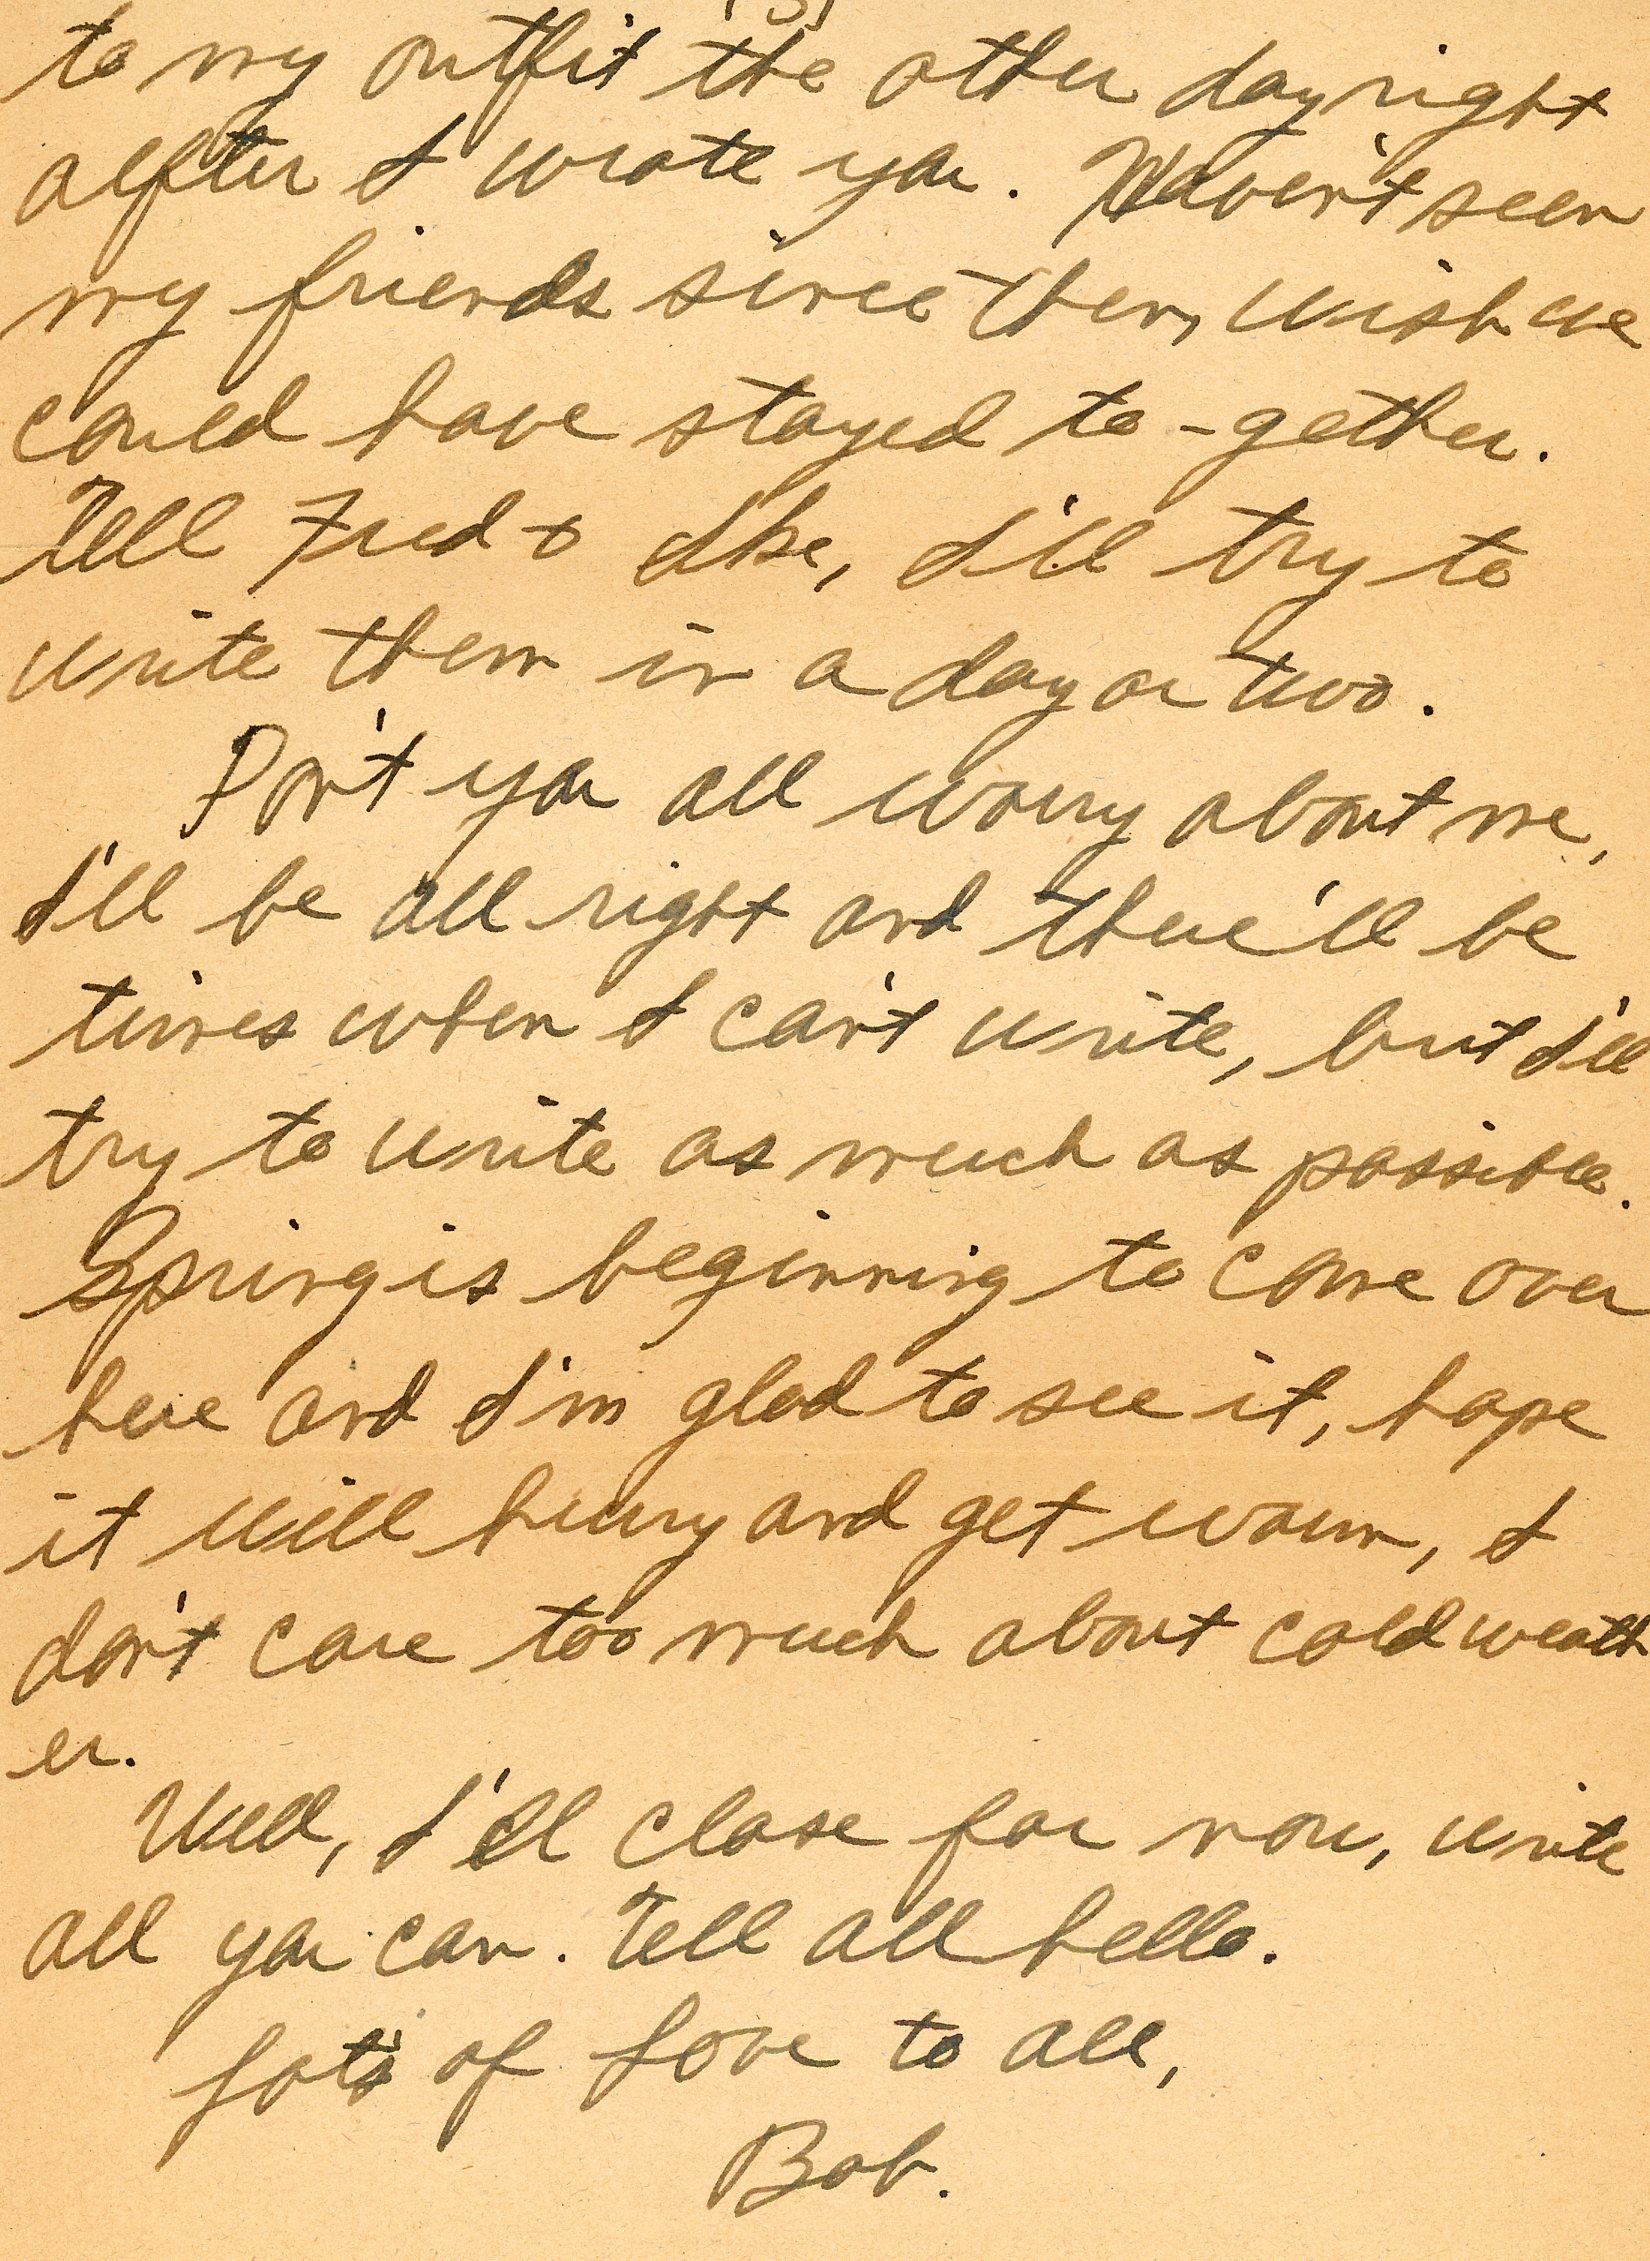 (3)
to my outfit the other day right
after I wrote you. Haven't seen
my friends since then, wish we
could have stayed to-gether.
Tell Fred & Ike, I'll try to
write them in a day or two.
Don't you all worry about me,
I'll be all right and there'll be
times when I can't write, but I'll
try to write as much as possible.
Spring is beginning to come over
here and I'm glad to see it, hope
it will hurry and get warm, I
don't care too much about cold weath
er.
Well, I'll close for now, write
all you can. Tell all hello.
Lots of Love to all,
Bob.